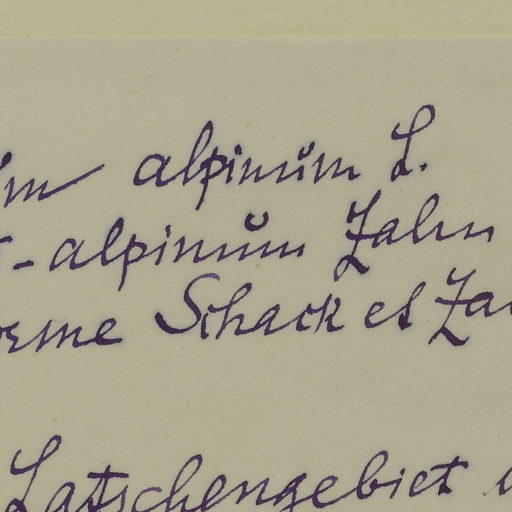 um alpinum L.
-alpinum Zahn
Schack et Za
Latschengebiet